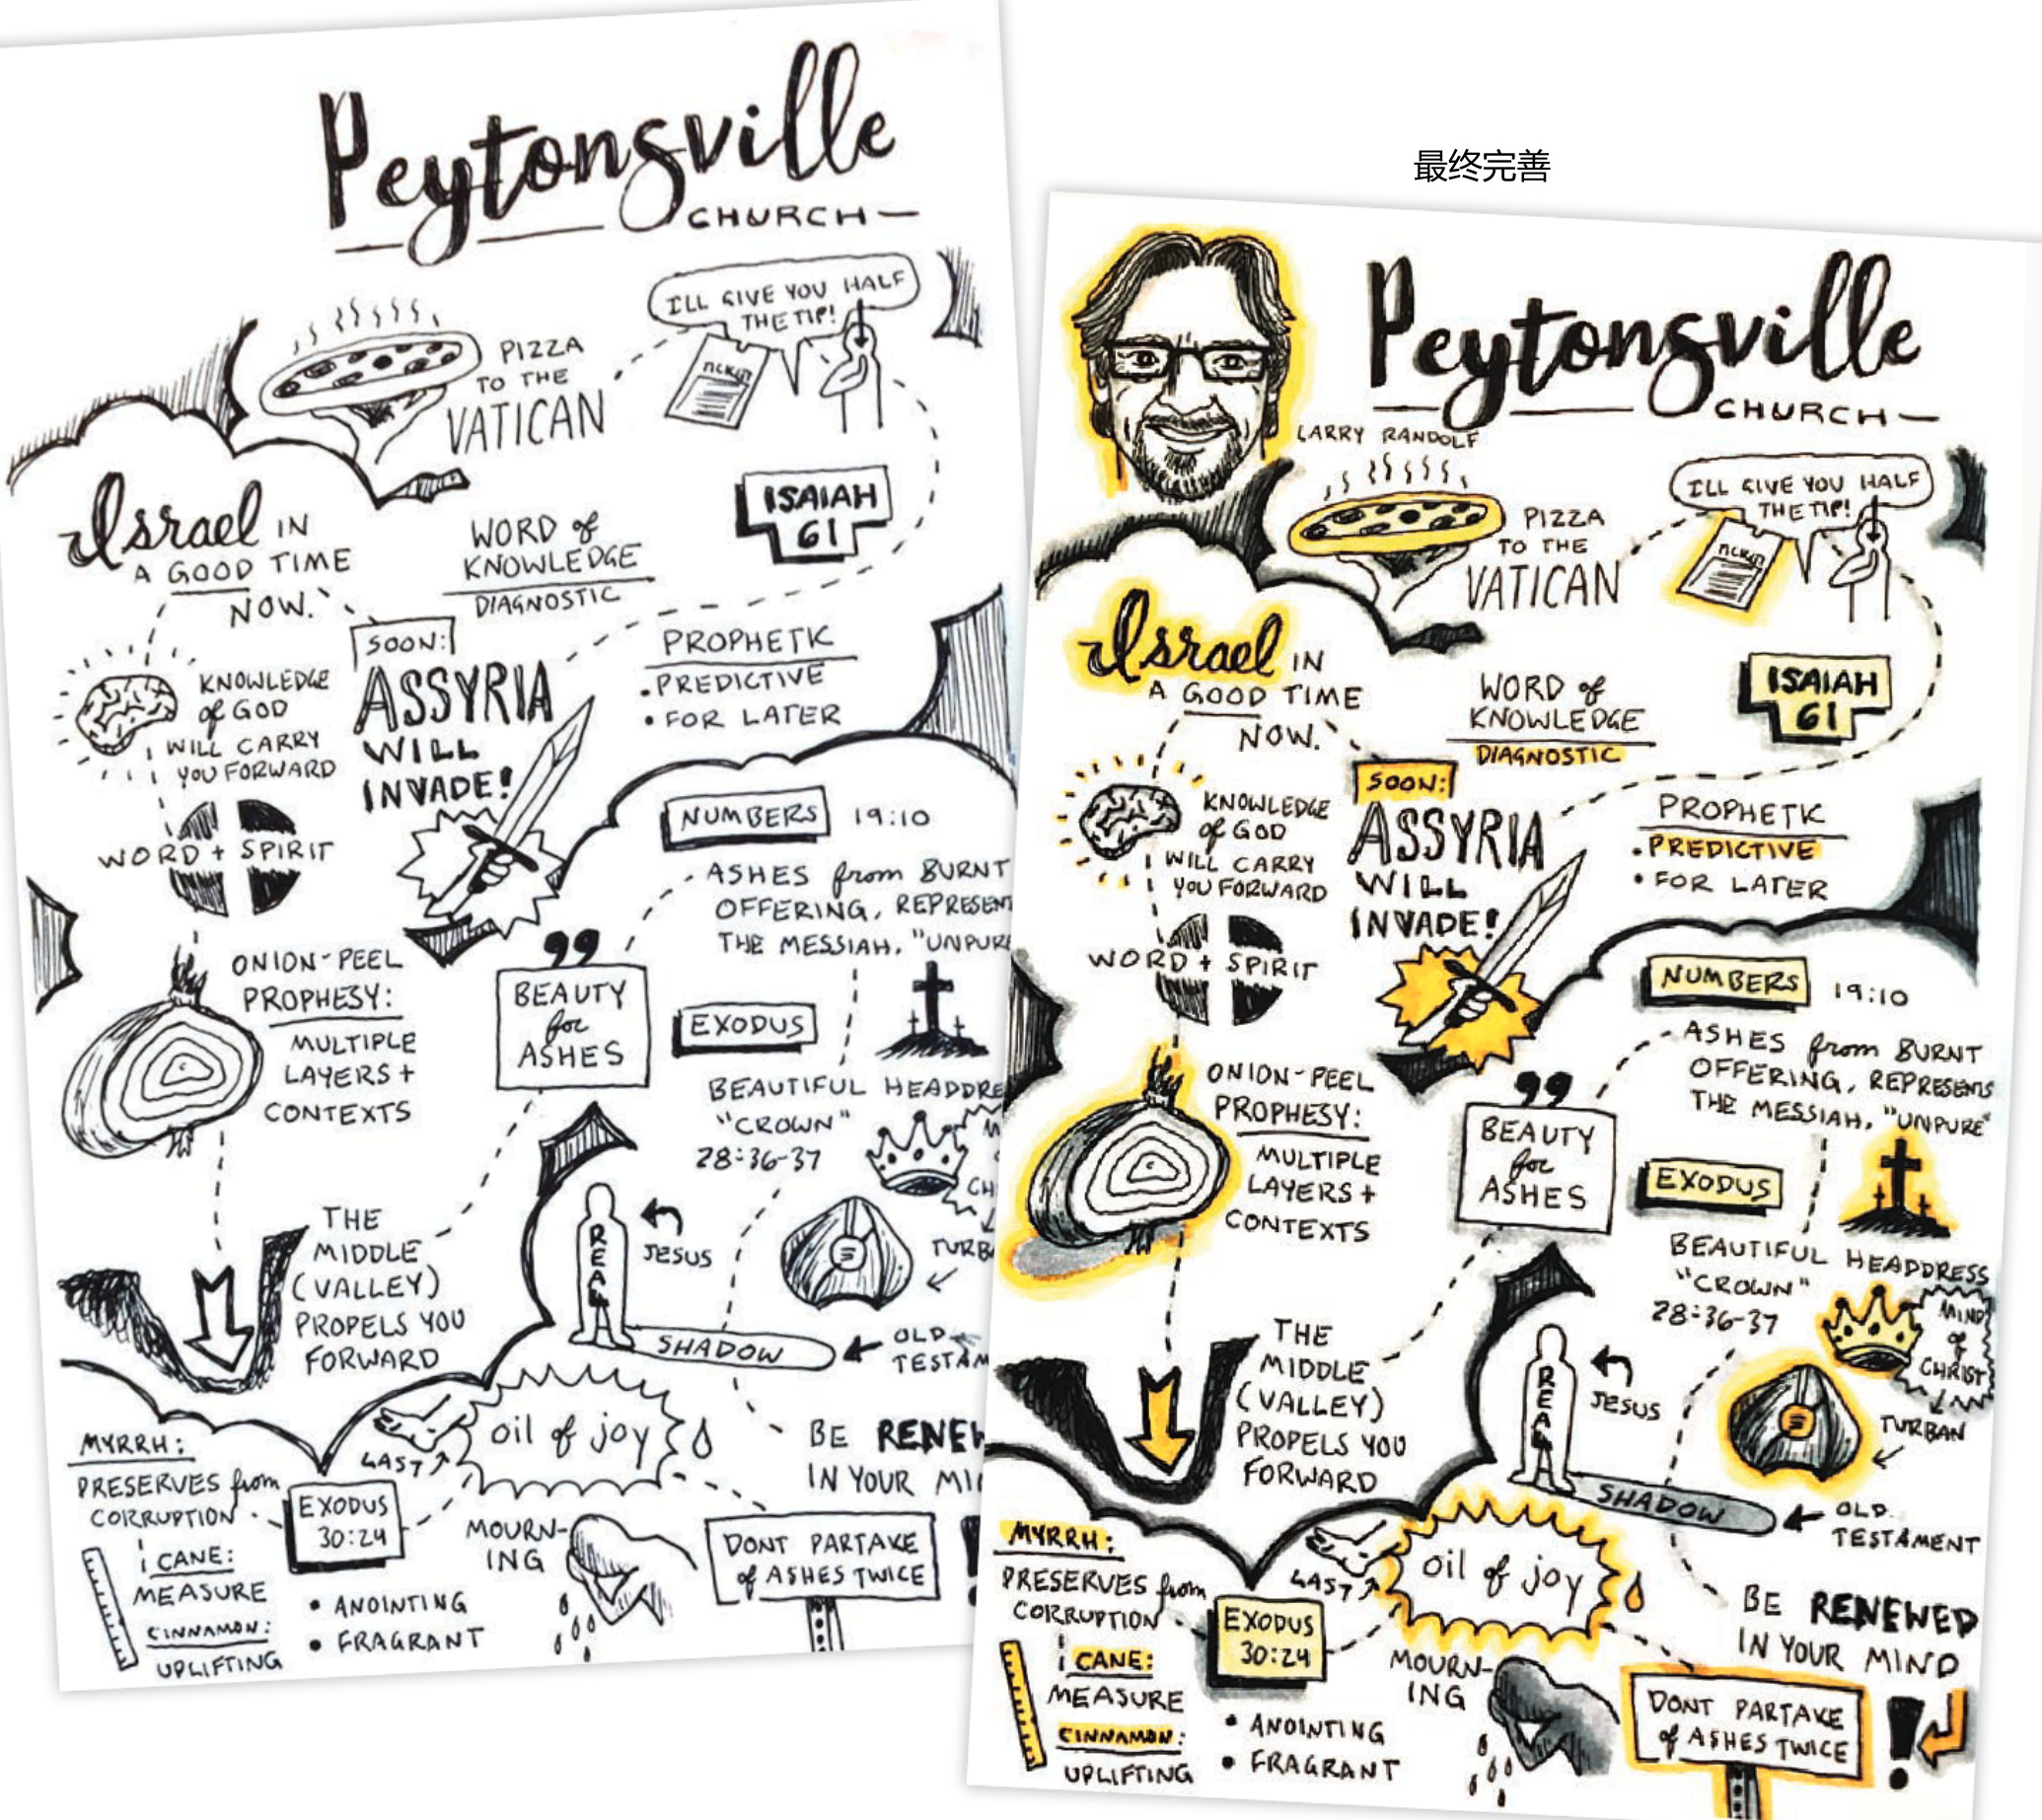 Peytonsville
CHURCH
ILL GIVE YOU HALF
THE TIP!
PIZZA
TO THE
VATICAN
ISAIAH
61
Israel IN
A GOOD TIME
NOW.
WORD of
KNOWLEDGE
DIAGNOSTIC
SOON:
ASSYRIA
WILL
INVADE!
PROPHETIC
• PREDICTIVE
• FOR LATER
KNOWLEDGE
of GOD
WILL CARRY
YOU FORWARD
WORD + SPIRIT
NUMBERS 19:10
ASHES from BURNT
OFFERING, REPRESENT
THE MESSIAH, "UNPURE
ONION-PEEL
PROPHESY:
MULTIPLE
LAYERS +
CONTEXTS
BEAUTY
for
ASHES
EXODUS
BEAUTIFUL HEADDRE
"CROWN"
28:36-37
M
CH
TURB
THE
MIDDLE
(VALLEY)
PROPELS YOU
FORWARD
REAL
JESUS
SHADOW
OLD
TESTAM
MYRRH:
PRESERVES from
CORRUPTION
LAST
oil of joy
BE RENEW
IN YOUR MI
EXODUS
30:24
CANE:
MEASURE
CINNAMON:
UPLIFTING
• ANOINTING
• FRAGRANT
MOURN-
ING
DONT PARTAKE
of ASHES TWICE
最终完善
Peytonsville
CHURCH
LARRY RANDOLF
ILL GIVE YOU HALF
THE TIP!
PIZZA
TO THE
VATICAN
ISAIAH
61
Israel IN
A GOOD TIME
NOW.
WORD of
KNOWLEDGE
DIAGNOSTIC
SOON:
ASSYRIA
WILL
INVADE!
PROPHETIC
• PREDICTIVE
• FOR LATER
KNOWLEDGE
of GOD
WILL CARRY
YOU FORWARD
WORD + SPIRIT
NUMBERS 19:10
ASHES from BURNT
OFFERING, REPRESENTS
THE MESSIAH, "UNPURE"
ONION-PEEL
PROPHESY:
MULTIPLE
LAYERS +
CONTEXTS
BEAUTY
for
ASHES
EXODUS
BEAUTIFUL HEADDRESS
"CROWN"
28:36-37
MIND
of
CHRIST
TURBAN
THE
MIDDLE
(VALLEY)
PROPELS YOU
FORWARD
REAL
JESUS
SHADOW
OLD
TESTAMENT
MYRRH:
PRESERVES from
CORRUPTION
LAST
oil of joy
BE RENEWED
IN YOUR MIND
EXODUS
30:24
CANE:
MEASURE
CINNAMON:
UPLIFTING
• ANOINTING
• FRAGRANT
MOURN-
ING
DONT PARTAKE
of ASHES TWICE
!